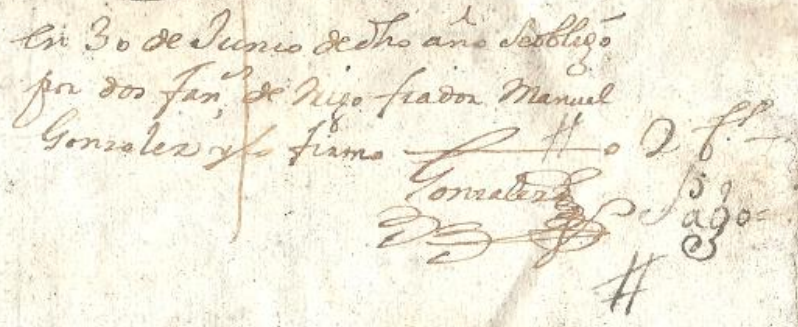 en 30 de Junio de dho año se obligó
por dos fan.s de trigo fiador Manuel
Gonzalez y lo firmo # o 2 f.s
Gonzalez